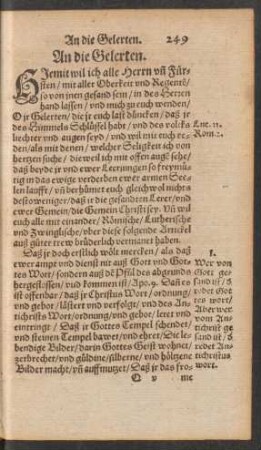 An die Gelerten. 249
An die Gelerten.
HIemit wil ich alle Herrn vñ Für-
sten / mit aller Oberkeit vnd Regentẽ/
so von jnen gesand sein / in des Herren
hand lassen / vnd mich zu euch wenden/
O jr Gelerten / die jr euch last düncken / daß jr
des Himmels Schlüssel habt / vnd des volcks
liechter vnd augen seyd / vnd wil mit euch re-
den / als mit denen / welcher Seligkeit ich von
hertzen suche / die weil ich mit offen auge sehe/
daß beyde jr vnd ewer Leerjungen so freymü-
tig in das ewige verderben ewer armen See-
len laufft / vñ berhümet euch gleichwol nichts
destoweniger / daß jr die gesandten Lerer / vnd
ewer Gemein / die Gemein Christi sey. Vñ wil
euch alle mit einander / Römische / Lutherische
vnd Zwinglische / vber diese folgende Artickel
auß güter trew brüderlich vermanet haben.
Daß jr doch erstlich wölt mercken / als daß
ewer ampt vnd dienst nit auß Gott vnd Got-
tes Wort / sondern auß dẽ Pfül des abgrunds
hergeflossen / vnd kommen ist / Apo. 9. Dañ es
ist offenbar / daß jr Christus Wort / ordnung/
vnd gebot / lästert vnd verfolgt / vnd des An-
tichrists Wort / ordnung / vnd gebot / leret vnd
eintringt / Daß jr Gottes Tempel schendet/
vnd steinen Tempel bawet / vnd ehret / Die le-
bendige Bilder / darin Gottes Geist wohnet/
zerbrechet / vnd güldine / silberne / vnd höltzene
Bilder macht / vñ auffmutzet / Daß jr das fro-
me
Luc. 11.
Rom. 2.
1.
Wer von
Gott ge-
sand ist / d
redet Got
tes wort/
Aber wer
vom An-
tichrist ge
sand ist / d
redet An-
tichristus
wort.